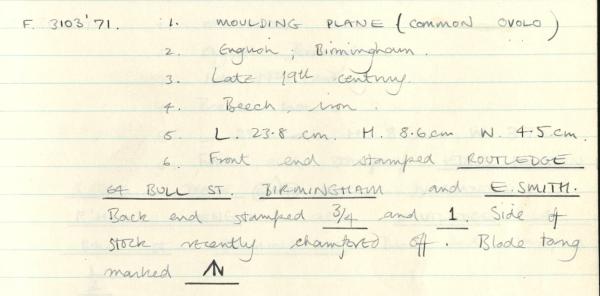 F. 3103'71. 1. MOULDING PLANE (COMMON OVOLO)
2. English; Birmingham.
3. Late 19th century.
4. Beech, iron.
5 L. 23.8 cm. H. 8.6cm W. 4.5cm.
6. Front end stamped ROUTLEDGE
64 BULL ST. BIRMINGHAM and E. SMITH.
Back end stamped 3/4 and 1. Side of
stock recently chamfered off. Blade tang
marked